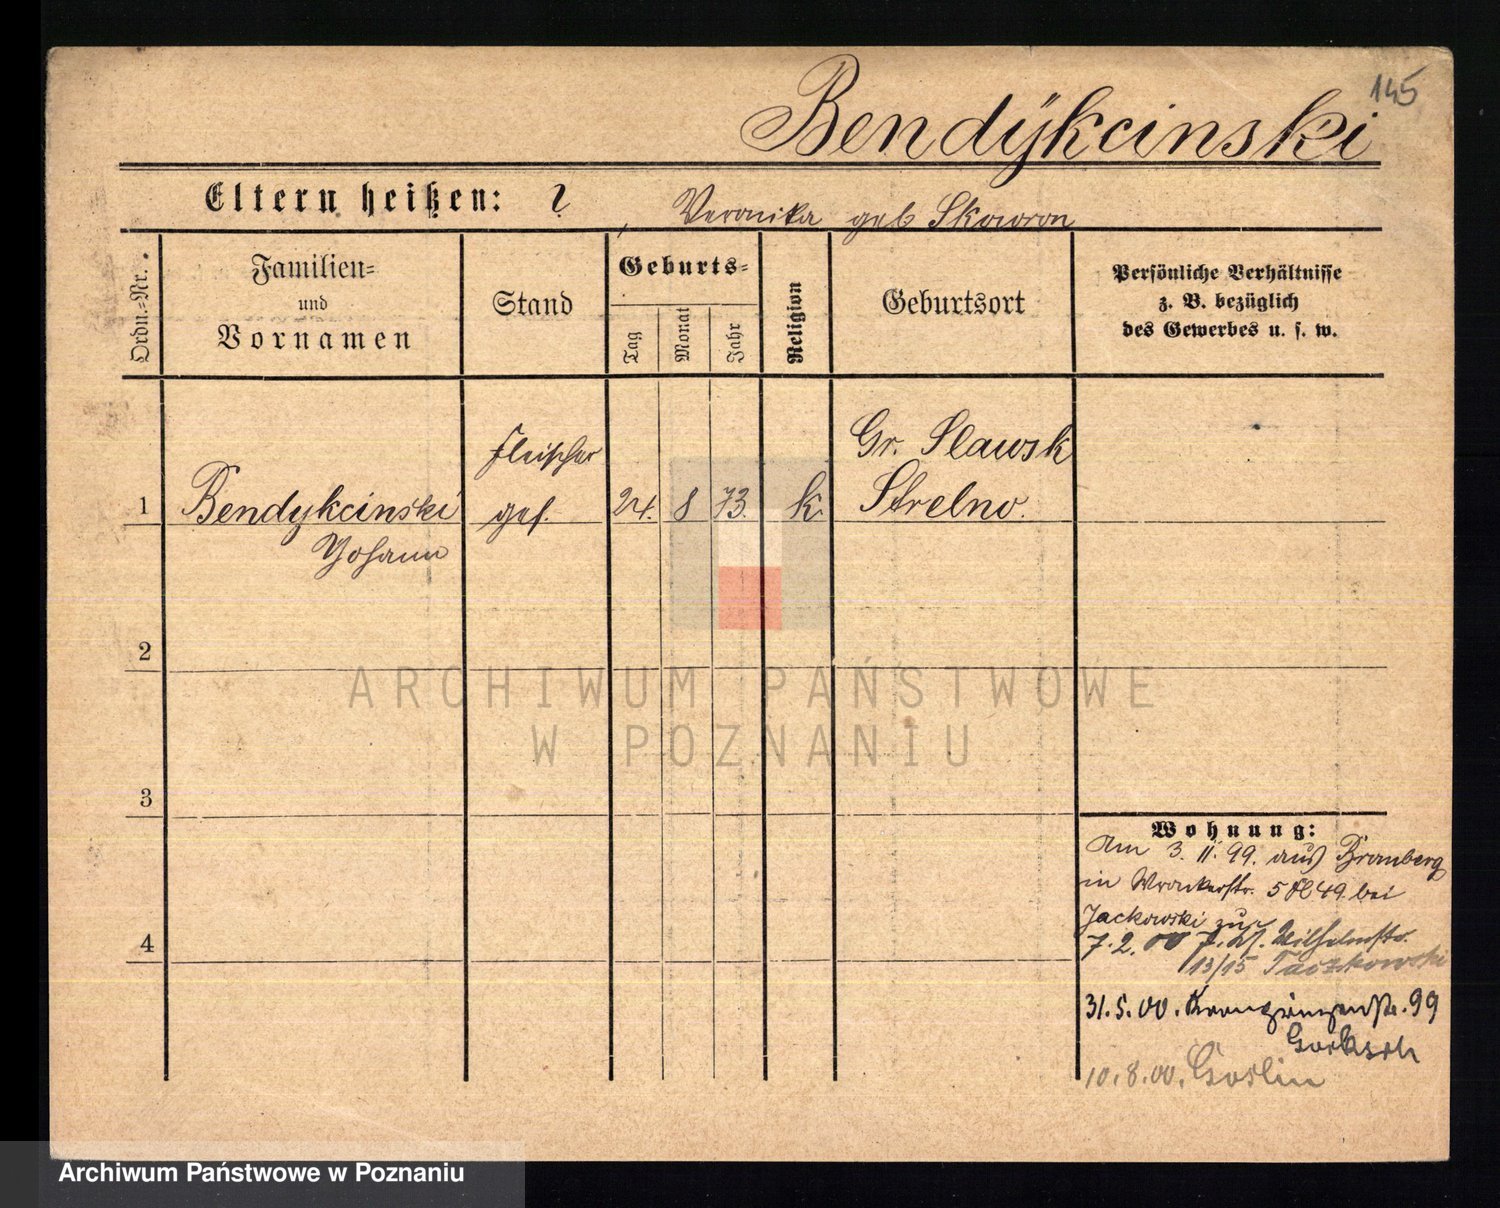 145
Bendÿkcinski
Eltern heißen: ? Veronika geb Skowron
Ordn.-Nr.
Familien=
und
Vornamen
Stand
Geburts=
Tag
Monat
Jahr
Religion
Geburtsort
Persönliche Verhältnisse
z. B. bezüglich
des Gewerbes u. s. w.
1
Bendykcinski
Johann
Fleischer
ges.
24. 8 73. k.
Gr. Slawsk
Strelno.
2
3
4
Wohnung:
Am 3. 11. 99. aus Bromberg
in Wronkerstr. bei
Jackowski zur
7.2.00 Wilhelmstr.
13/15 Taczkowski
31.5.00. Kronprinzenstr. 99
10.8.00. Goslin
ARCHIWUM PAŃSTWOWE
W POZNANIU
Archiwum Państwowe w Poznaniu